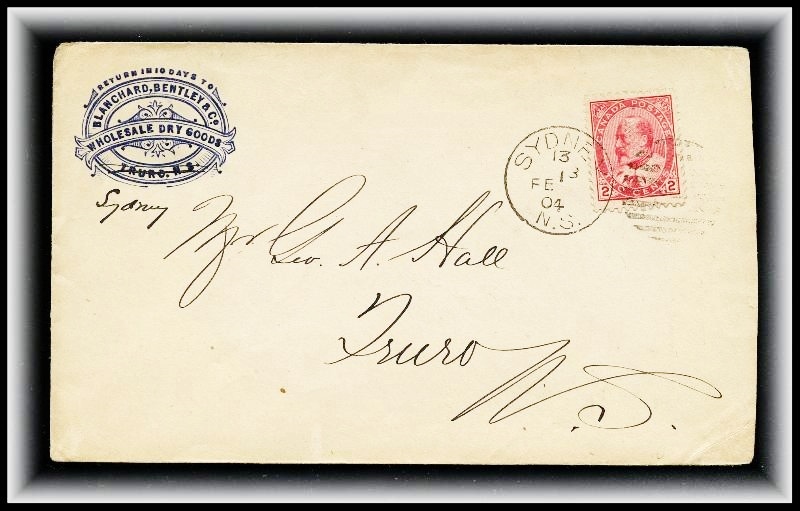 RETURN IN 10 DAYS TO
BLANCHARD, BENTLEY & Co
WHOLESALE DRY GOODS
TRURO, N.S.
Sydney
CANADA POSTAGE
2 TWO CENTS 2
SYDNE
13
13
FE
04
N.S.
Mr Geo. A. Hall
Truro
N.S.